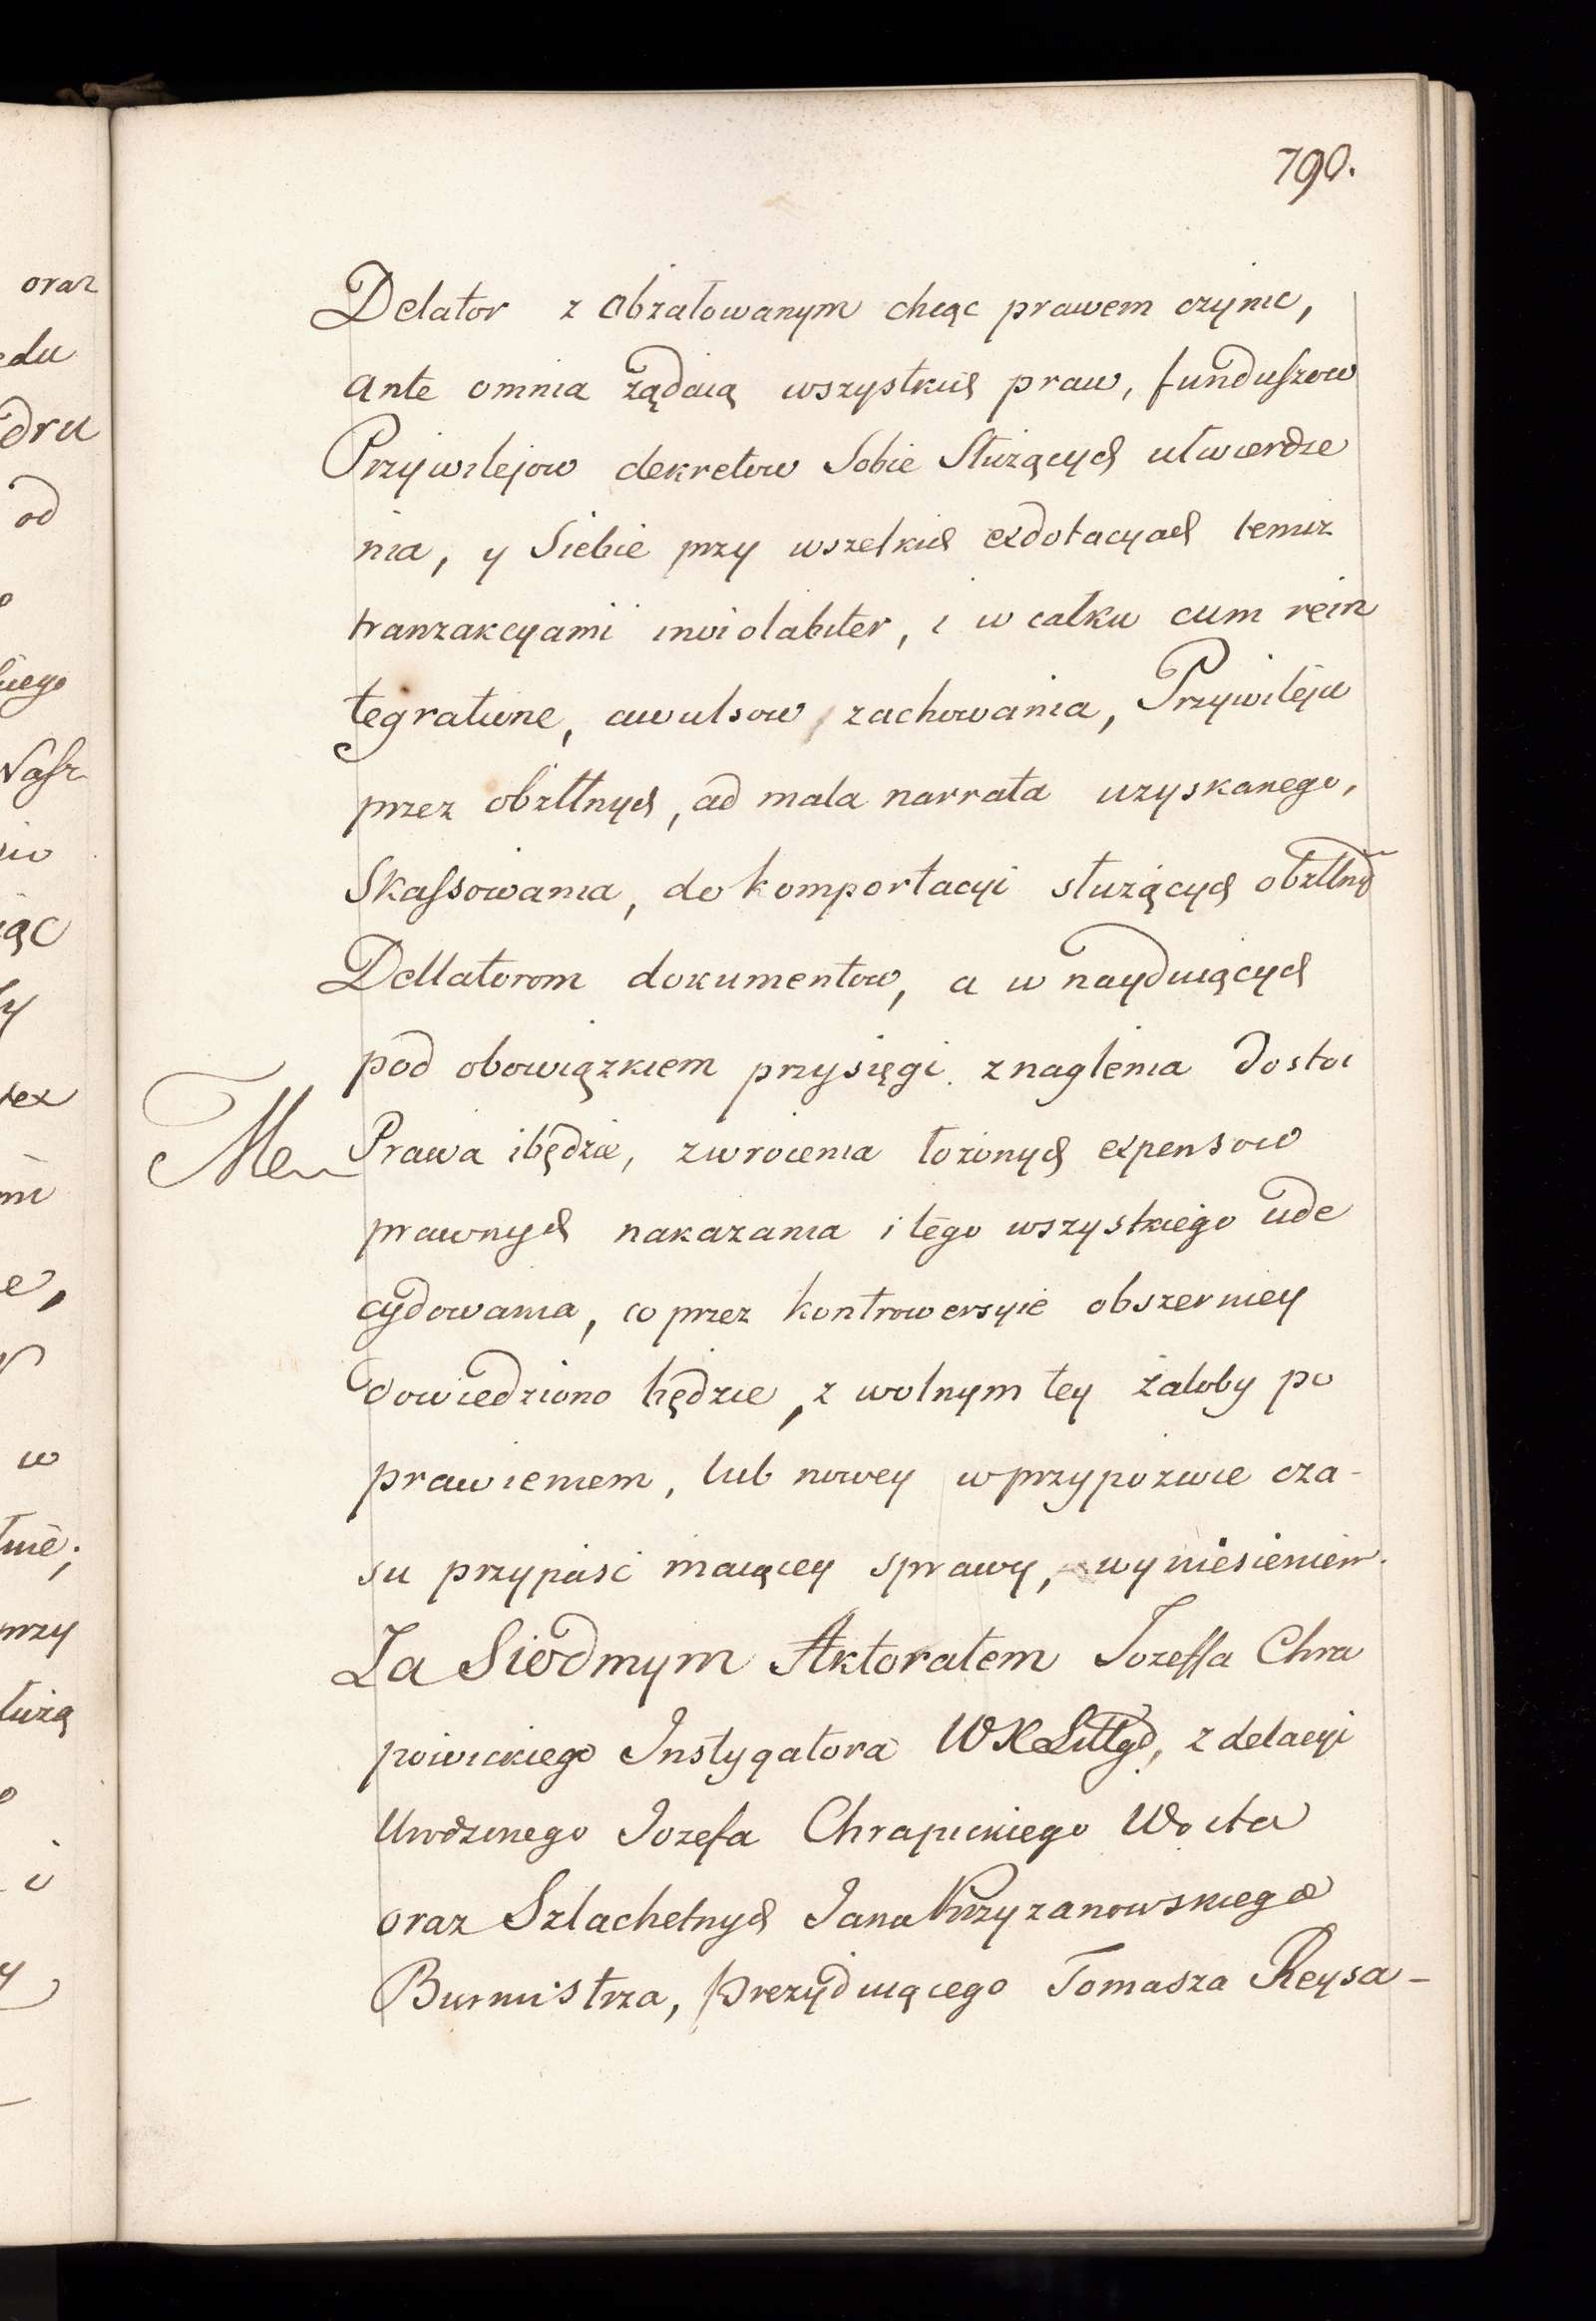 790.
oraz
edu
dru
od
Delator z obżałowanym chcąc prawem czynic,
ante omnia żądaią wszystkich praw, funduszow
Przywilejow dekretow Sobie Służących utwierdze
nia, y Siebie przy wszelkich exdotacyach temiz
tranzakcyami inviolabiter, i w całku cum rein
tegratione, awulsow zachowania, Przywileju
przez obżłłnych, ad mala narrata uzyskanego,
Skassowania, do komportacyi służących obżłłnych
Dellatorom dokumentow, a w nayduiących
pod obowiązkiem przysięgi znaglenia dosłoi
Prawa i będzie, zwrocenia łożonych expensow
prawnych nakazania i tego wszystkiego ude
cydowania, co przez kontrowersyie obszerniey
dowiedziono będzie, z wolnym tey żałoby po
prawieniem, lub nowey w przypozwie cza-
su przypaść maiącey sprawy, wyniesieniem.
Za Siodmym Aktoratem Jozeffa Chra
powickiego Instygatora WXLittgo, z delacyi
Urodzonego Jozefa Chrapickiego Woita
oraz Szlachetnych Jana Krzyzanowskiego
Burmistrza, prezyduiącego Tomasza Reysa-